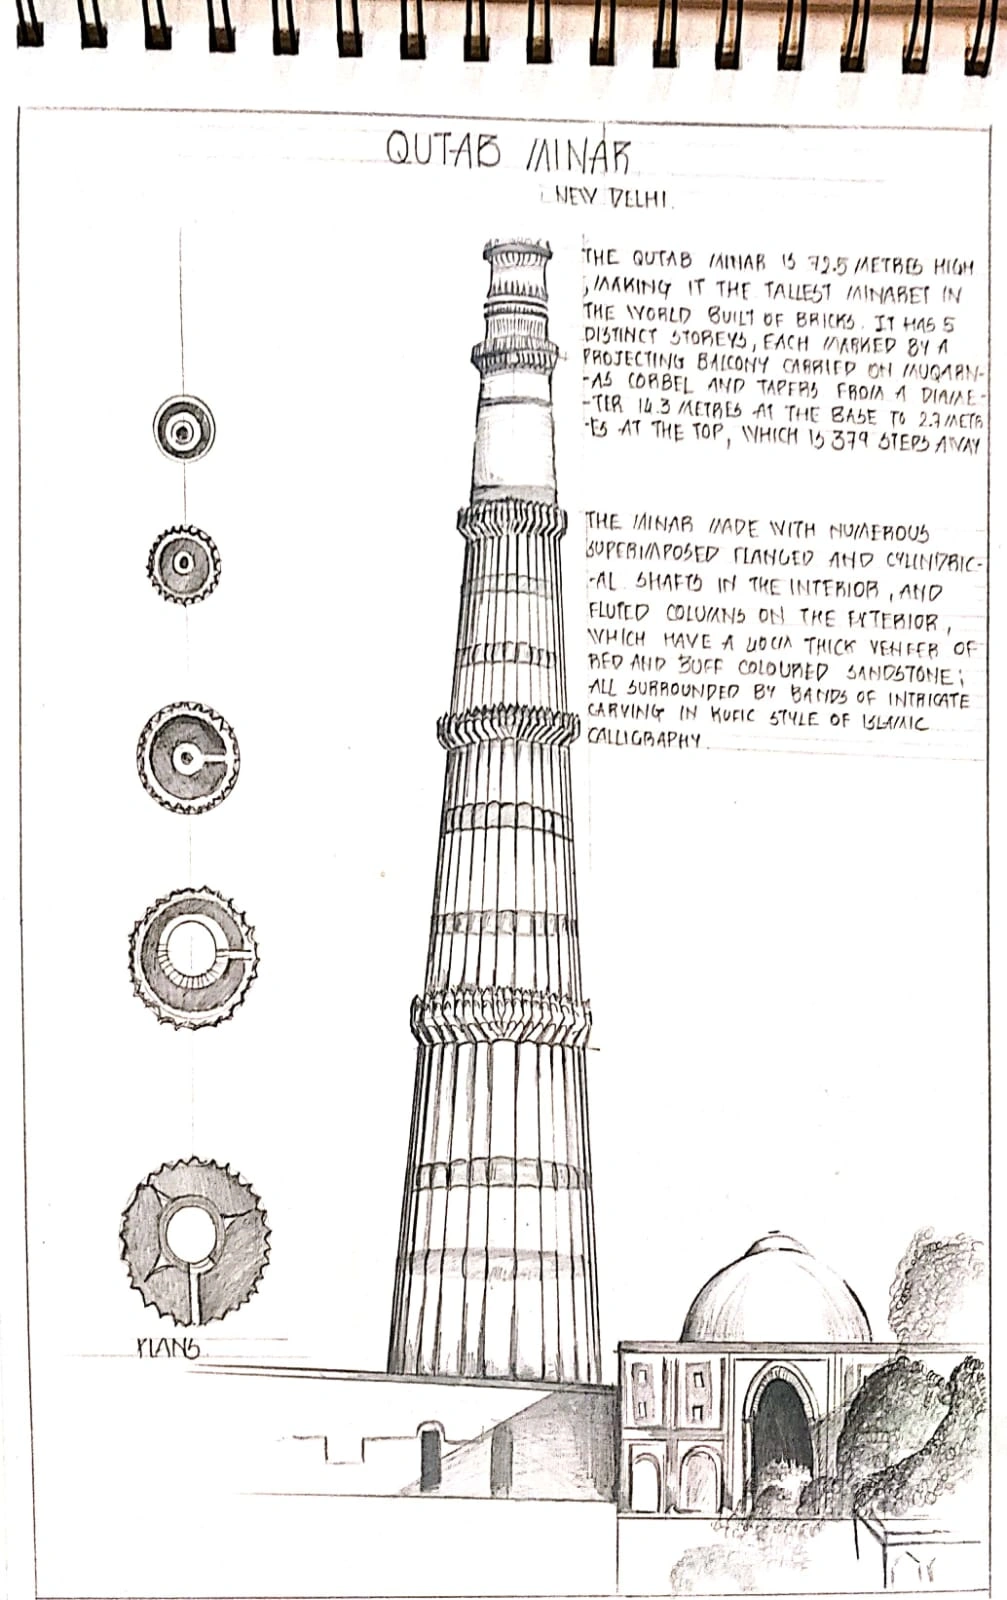 QUTAB MINAR
NEW DELHI.
THE QUTAB MINAR IS 72.5 METRES HIGH
, MAKING IT THE TALLEST MINARET IN
THE WORLD BUILT OF BRICKS. IT HAS 5
DISTINCT STOREYS, EACH MARKED BY A
PROJECTING BALCONY CARRIED ON MUQARN-
-AS CORBEL AND TAPERS FROM A DIAME-
-TER 14.3 METRES AT THE BASE TO 2.7 METR
-ES AT THE TOP, WHICH IS 379 STEPS AWAY
THE MINAR MADE WITH NUMEROUS
SUPERIMPOSED FLANGED AND CYLINDRIC-
-AL SHAFTS IN THE INTERIOR, AND
FLUTED COLUMNS ON THE EXTERIOR,
WHICH HAVE A 40CM THICK VENEER OF
RED AND BUFF COLOURED SANDSTONE;
ALL SURROUNDED BY BANDS OF INTRICATE
CARVING IN KUFIC STYLE OF ISLAMIC
CALLIGRAPHY.
PLANS